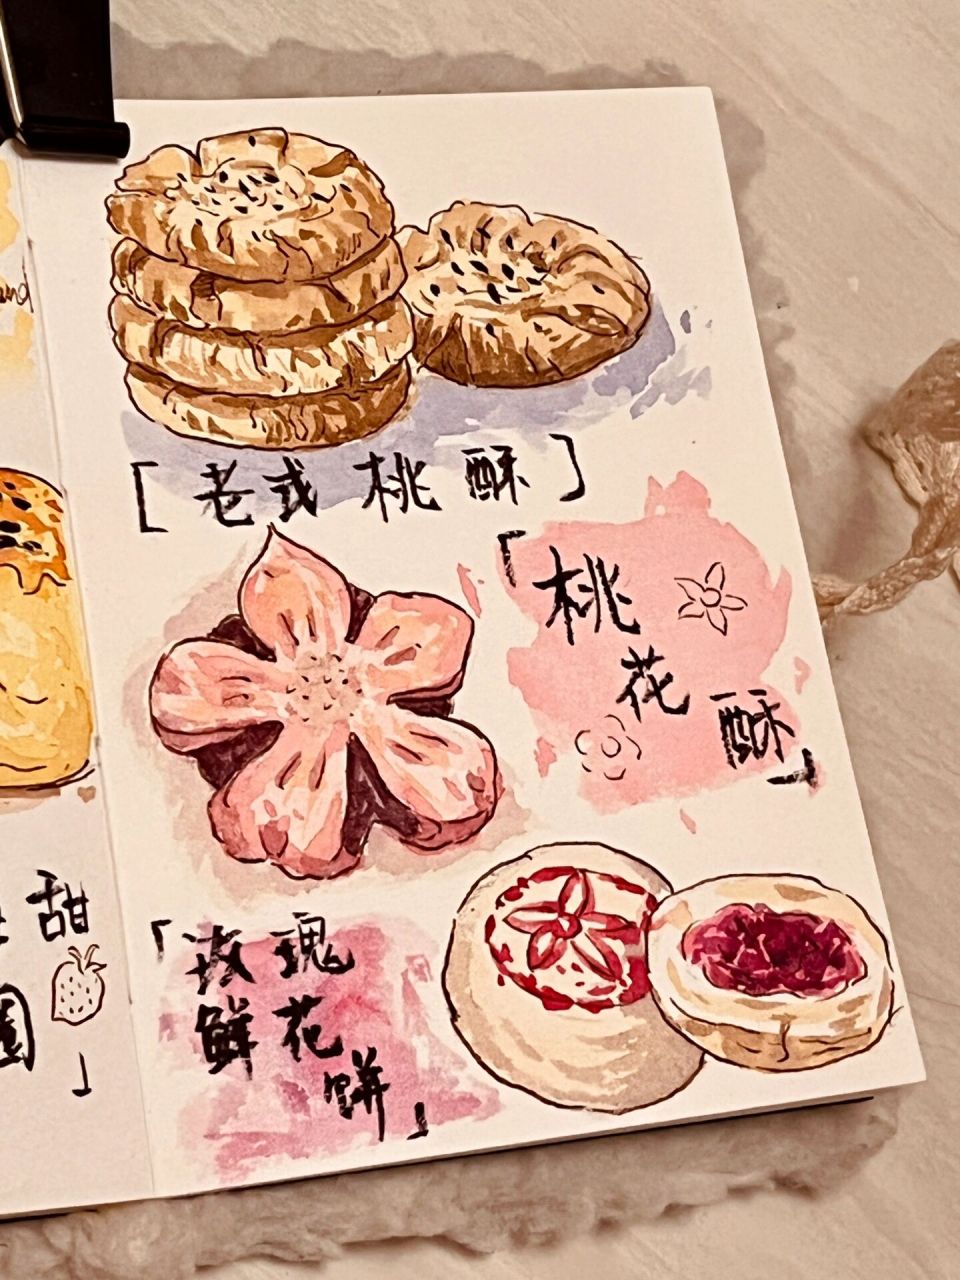 [老式桃酥]
「桃
花
酥」
「玫瑰
鲜花
饼」
甜
園
」